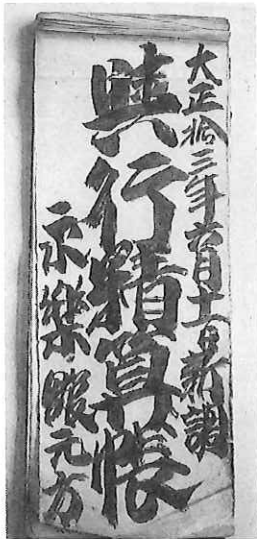 大正拾三年六月十一日新調
興行精算帳
永楽館元方